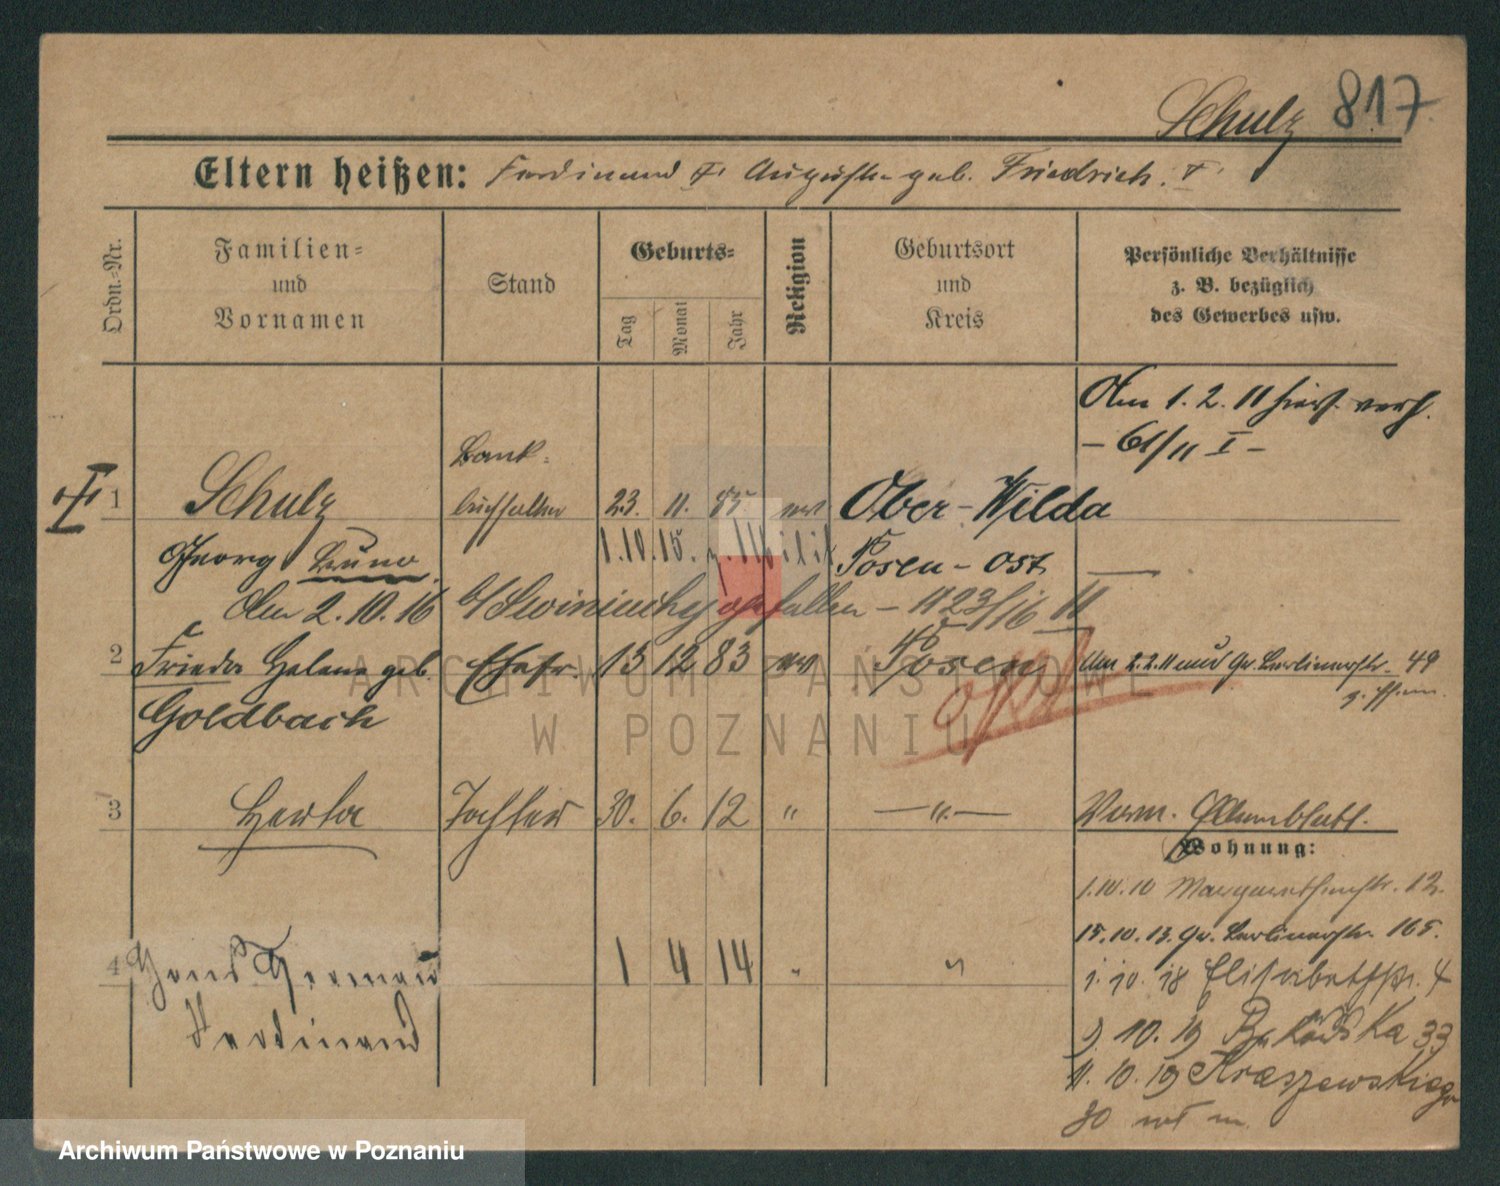 Schulz 817.
Eltern heißen: Ferdinand †, Auguste geb. Friedrich. †.
Ordn.-Nr.
Familien-
und
Vornamen
Stand
Geburts-
Tag
Monat
Jahr
Religion
Geburtsort
und
Kreis
Persönliche Verhältnisse
z. B. bezüglich
des Gewerbes usw.
Am 1. 2. 11 hier verh.
– 61/11 I –
Bank-
1 Schulz buchhalter 23. 11. 85 ev Ober-Wilda
Georg Bruno. 1.10.15. z. Militär Posen-Ost
Am 2. 10. 16 gefallen – 1123/16 II
2 Frieda Helene geb. Ehefr. 13 12 83 ev Posen Am 2.2.11 Gr. Berlinerstr. 49
Goldbach
3 Herta Tochter 30. 6. 12 " —"— Vorm.
Wohnung:
1.10.10 Margarethenstr. 12.
15.10.13. Gr. Berlinerstr. 165.
4 Hans Hermann 1 4 14 " " 1. 10. 18 Elisabethstr. 4
Ferdinand
10. 19 33
11. 10. 19 Kraszewskiego
ARCHIWUM PAŃSTWOWE
W POZNANIU
Archiwum Państwowe w Poznaniu